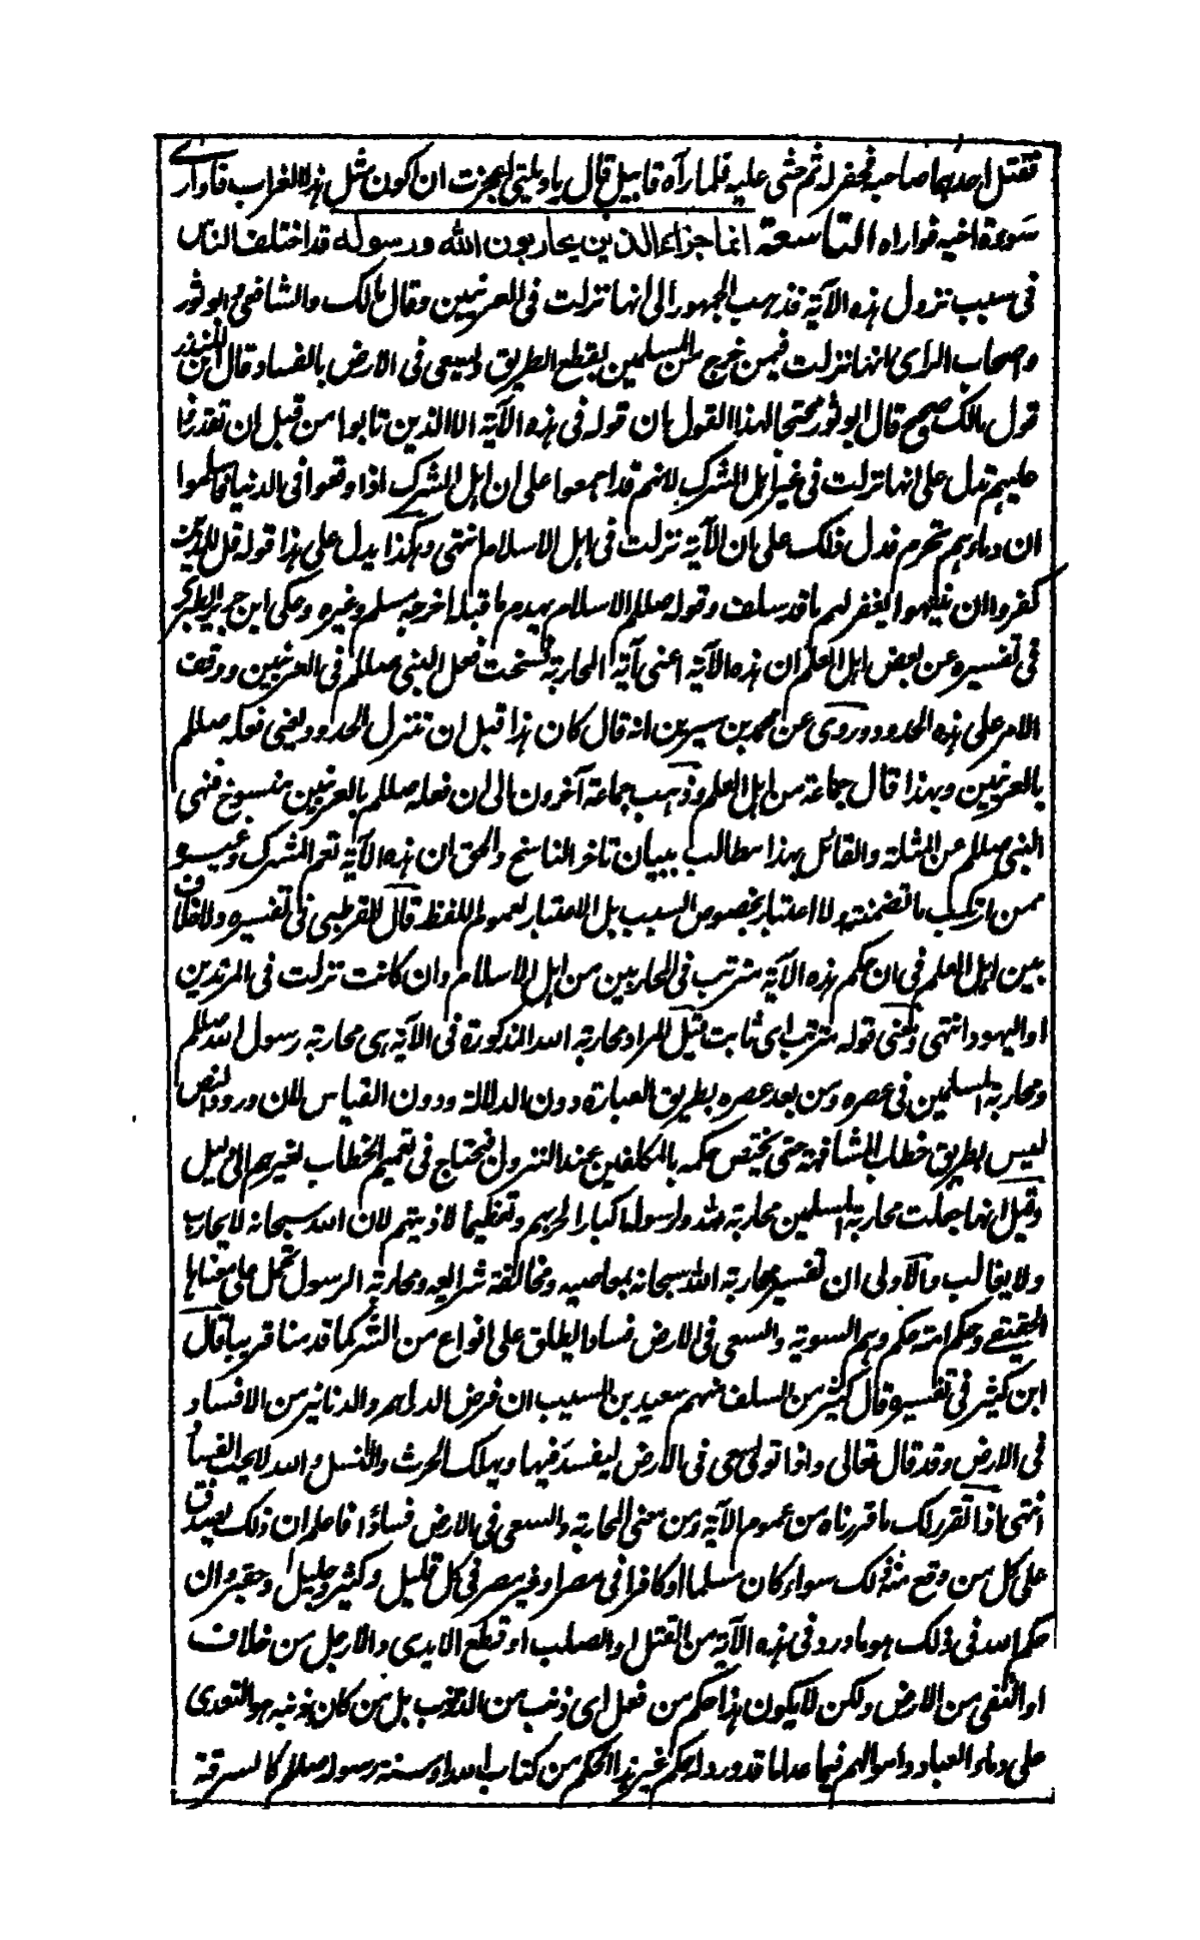 فقتل احدهما صاحبه فحفر له ثم حثى عليه فلما رآه قابيل قال يا ويلتي اعجزت ان اكون مثل هذا الغراب فاواري
سوءة اخيه فواراه التاسعة انما جزاء الذين يحاربون الله ورسوله قد اختلف الناس
في سبب نزول هذه الآية فذهب الجمهور الى انها نزلت في العرنيين وقال مالك والشافعي وابو ثور
واصحاب الراى انها نزلت فيمن خرج من المسلمين يقطع الطريق ويسعى في الارض بالفساد قال ابن المنذر
قول مالك صحيح قال ابو ثور محتجا لهذا القول بان قوله في هذه الآية الا الذين تابوا من قبل ان تقدروا
عليهم تدل على انها نزلت في غير اهل الشرك لانهم قد اجمعوا على ان اهل الشرك اذا وقعوا في ايدينا فاسلموا
ان دماءهم تحرم فدل ذلك على ان الآية نزلت في اهل الاسلام انتهى وهكذا يدل على هذا قوله قل للذين
كفروا ان ينتهوا يغفر لهم ما قد سلف وقوله صللم الاسلام يهدم ما قبله اخرجه مسلم وغيره وحكى ابن جرير الطبري
في تفسيره عن بعض اهل العلم ان هذه الآية اعنى آية المحاربة نسخت فعل النبي صللم في العرنيين ووقف
الامر على هذه الحدود وروى عن محمد بن سيرين انه قال كان هذا قبل ان تنزل الحدود يعني فعله صللم
بالعرنيين وبهذا قال جماعة من اهل العلم وذهب جماعة آخرون الى ان فعله صللم بالعرنيين منسوخ بنهي
النبي صللم عن المثلة والقائل بهذا مطالب ببيان تاخر الناسخ والحق ان هذه الآية تعم المشرك وغيره
ممن ارتكب ما تضمنته ولا اعتبار بخصوص السبب بل الاعتبار لعموم اللفظ قال القرطبي في تفسيره ولا خلاف
بين اهل العلم في ان حكم هذه الآية مترتب في المحاربين من اهل الاسلام وان كانت نزلت في المرتدين
او اليهود انتهى ومعنى قوله مترتب اى ثابت قيل المراد بمحاربة الله المذكورة في الآية هي محاربة رسول الله صللم
ومحاربة المسلمين في عصره ومن بعد عصره بطريق العبارة دون الدلالة ودون القياس لان ورود النص
ليس بطريق خطاب المشافهة حتى يختص حكمه بالمكلفين عند النزول فيحتاج في تعميم الخطاب لغيرهم الى دليل
وقيل انها جعلت محاربة المسلمين محاربة لله ولرسوله اكبارا لحربهم وتعظيما لاذيتهم لان الله سبحانه لا يحارب
ولا يغالب والاولى ان تفسر محاربة الله سبحانه بمعاصيه ومخالفة شرائعه ومحاربة الرسول تحمل على معناها
الحقيقي وحكم امته حكمه وهم اسوته والسعي في الارض فسادا يطلق على انواع من الشر كما قدمنا قريبا قال
ابن كثير في تفسيره قال كثير من السلف منهم سعيد بن المسيب ان قرض الدراهم والدنانير من الافساد
في الارض وقد قال تعالى واذا تولى سعى في الارض ليفسد فيها ويهلك الحرث والنسل والله لا يحب الفساد
انتهى اذا تقرر لك ما قررناه من عموم الآية ومن معنى المحاربة والسعي في الارض فسادا فاعلم ان ذلك يصدق
على كل من وقع منه ذلك سواء كان مسلما او كافرا في مصر او غير مصر في كل قليل وكثير وجليل وحقير وان
حكم الله في ذلك هو ما ورد في هذه الآية من القتل او الصلب او قطع الايدى والارجل من خلاف
او النفي من الارض ولكن لا يكون هذا حكم من فعل اى ذنب من الذنوب بل من كان ذنبه هو التعدي
على دماء العباد واموالهم فيما عدا ما قد ورد له حكم غير هذا الحكم من كتاب الله او سنة رسوله صللم كالسرقة